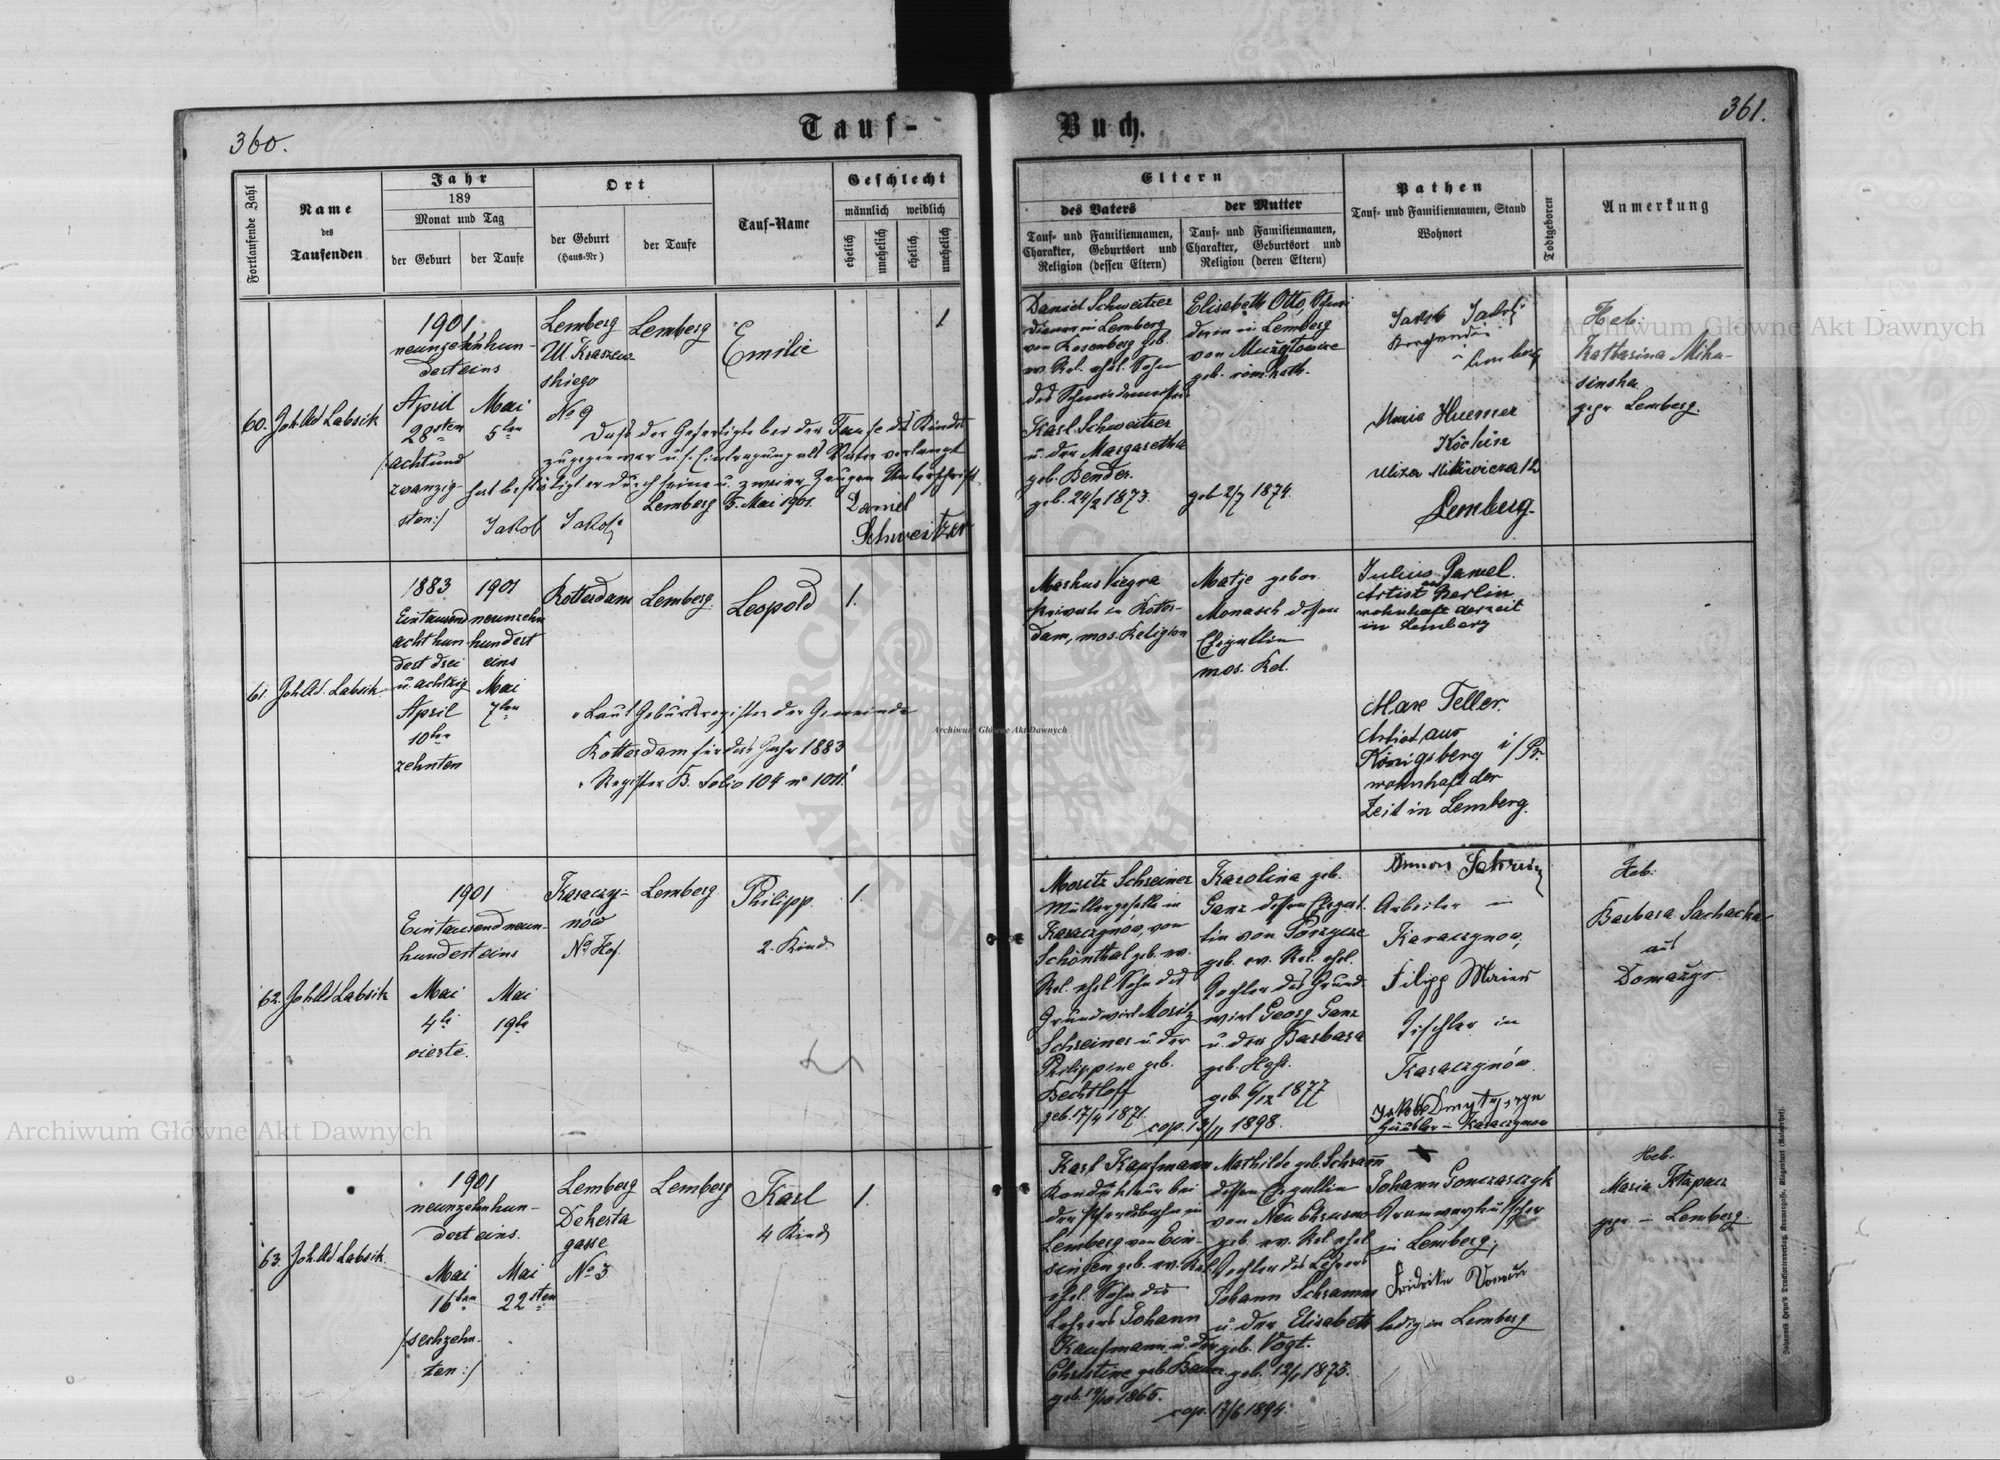 360.
Tauf-
Fortlaufende Zahl
Name
des
Taufenden
Jahr
189
Monat und Tag
der Geburt
der Taufe
Ort
der Geburt
(Haus-Nr)
der Taufe
Tauf-Name
Geschlecht
männlich weiblich
ehelich
unehelich
ehelich
unehelich
60. Joh. Ad Labsik
1901
neunzehnhun-
dert eins
April
28sten
/:achtund
zwanzig-
sten:/
Mai
5ten
Lemberg
Ul. Kraszew
skiego
No 9
Lemberg
Emilie
1
Daß der Gefertigte bei der Taufe des Kindes
zugegen war u. s. Eintragung als Vater verlangt
hat bestätigt er durch seine u. zweier Zeugen Unterschrift
Lemberg 5. Mai 1901.
Daniel
Schweitzer
Jakob
61. Joh. Ad. Labsik
1883
Eintausend
acht hun-
dert drei
u. achtzig
April
10ten
zehnten
1901
neunzehn
hundert
eins
Mai
7ten
Rotterdam
Lemberg
Leopold
1.
Laut Geburtsregister der Gemeinde
Rotterdam für das Jahr 1883
Register B. folio 104 no
62. Joh. Ad Labsik
1901
Eintausend neun-
hundert eins
Mai
4te
vierte.
Mai
19te
Karaczy-
nów
No Hof.
Lemberg
Philipp
2. Kind
1.
63. Joh. Ad Labsik
1901
neunzehnhun-
dert eins.
Mai
16ten
/:sechzehn-
ten:/
Mai
22sten
Lemberg
Dekerta
gasse
No 3
Lemberg
Karl
4 Kind
1.
361.
Buch.
Eltern
des Vaters
Tauf- und Familiennamen,
Charakter, Geburtsort und
Religion (dessen Eltern)
der Mutter
Tauf- und Familiennamen,
Charakter, Geburtsort und
Religion (deren Eltern)
Pathen
Tauf- und Familiennamen, Stand
Wohnort
Todtgeboren
Anmerkung
Daniel Schweitzer
Diener in Lemberg
von Rosenberg geb.
ev. Rel. ehel. Sohn
des
Karl Schweitzer
u. der Margaretha
geb. Bender.
geb. 24/2 1873.
Elisabeth Otto,
in Lemberg
von
geb. röm. kath.
geb 2/7 1874.
Jakob
Lemberg
Marie Huemer
Köchin
Mikiewicza 12
Lemberg.
Heb.
Katharina Miku-
sinska
gepr. Lemberg.
Markus Viegra
Private in Rotter-
dam, mos. Religion
Matje gebor.
Monasch dessen
Ehegattin
mos. Rel.
Julius Pawel.
Artist aus Berlin
wohnhaft derzeit
in Lemberg
Max Teller.
Artist, aus
Königsberg i/Pr.
wohnhaft der
Zeit in Lemberg.
Moritz Schreiner
Müllergeselle in
Karaczynów, von
Schönthal geb. ev.
Rel. ehel. Sohn des
Grundwirt Moritz
Schreiner u. der
Philippine geb.
Bechtloff
geb. 17/4 1871.
Karolina geb.
Ganz dessen Ehegat-
tin von
geb. ev. Rel. ehel.
Tochter des Grund-
wirt Georg Ganz
u. der Barbara
geb.
geb. 6/12 1877
cop. 13/11 1898.
Arbeiter in
Karaczynow,
Filipp
Tischler in
Karaczynów.
Jakob Dmytryszyn
Karaczynow
Heb.
Barbara
aus
Domażyr.
Karl Kaufmann
Kondukteur bei
der Pferdebahn in
Lemberg von Ein-
singen geb. ev. Rel
ehel. Sohn des
Lehrers Johann
Kaufmann u. der
Christine geb. Bauer
geb. 19/10 1865.
Mathilde geb. Schramm
dessen Ehegattin
von Neu Chrusno
geb. ev. Rel ehel
Tochter des Lehrers
Johann Schramm
u. der Elisabeth
geb. Vogt.
geb. 12/1 1873.
cop. 17/6 1894.
Johann Gonczarczyk
Tramwaykutscher
in Lemberg;
Fridrike
ledig in Lemberg
Heb.
Maria
gepr. in Lemberg
Archiwum Główne Akt Dawnych
Archiwum Główne Akt Dawnych
Archiwum Główne Akt Dawnych